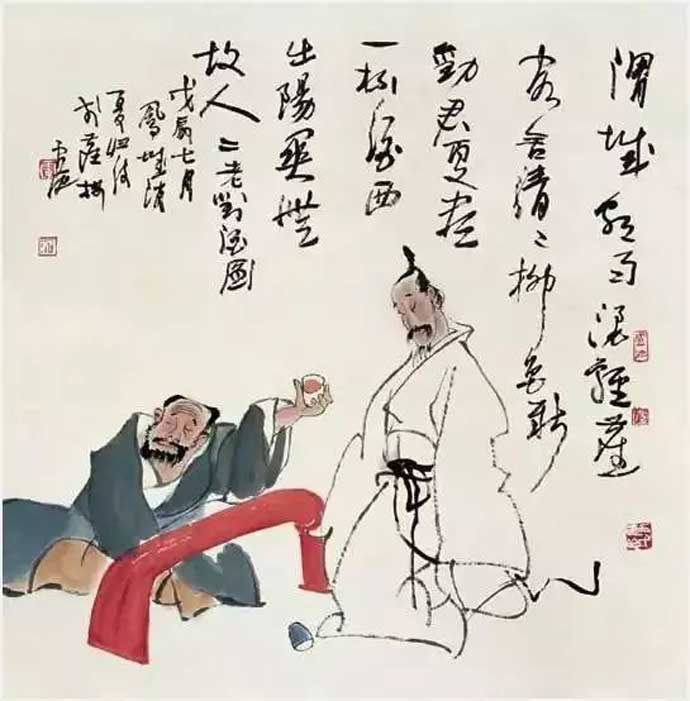 渭城朝雨浥輕塵
客舍清〻柳色新
勸君更盡
一杯酒西
出陽關無
故人 二老對酒圖
戊辰七月
鳳城消
夏歸後
於